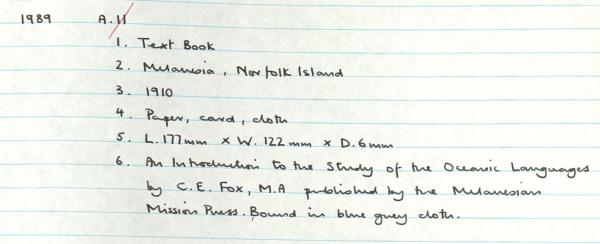 1989 A.11
1. Text Book
2. Melanesia, Norfolk Island
3. 1910
4. Paper, card, cloth
5. L.177mm x W.122mm x D.6mm
6. An Introduction to the Study of the Oceanic Languages
by C.E. Fox, M.A published by the Melanesian
Mission Press. Bound in blue grey cloth.